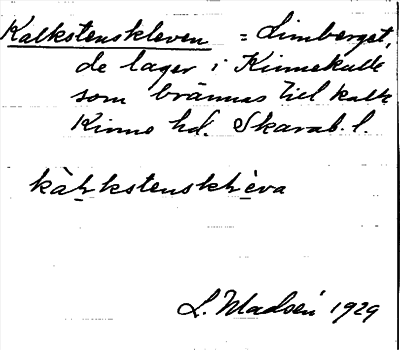 Kalkstenskleven = Limberget,
de lager i Kinnekulle
som brännas till kalk
Kinne hd. Skarab. l.
kàḻkstensklèva
L. Madsén 1929